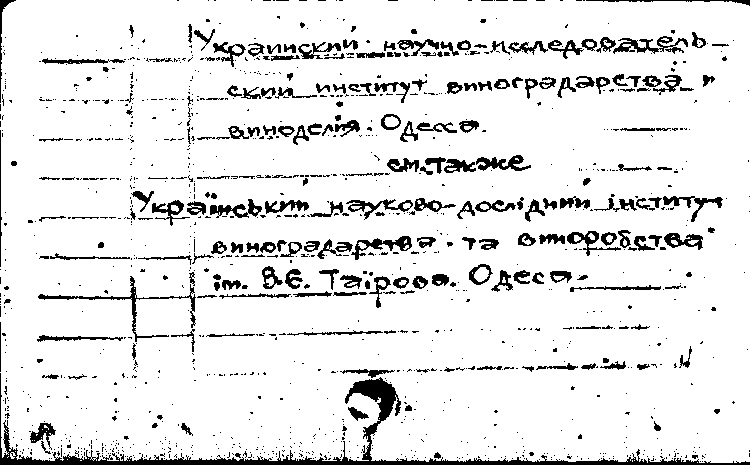 Украинский научно-исследователь-
ский институт виноградарства и
виноделия. Одесса.
см.также
Український науково-дослідний інститут
виноградарства та виноробства
ім. В.Є. Таїрова. Одеса.